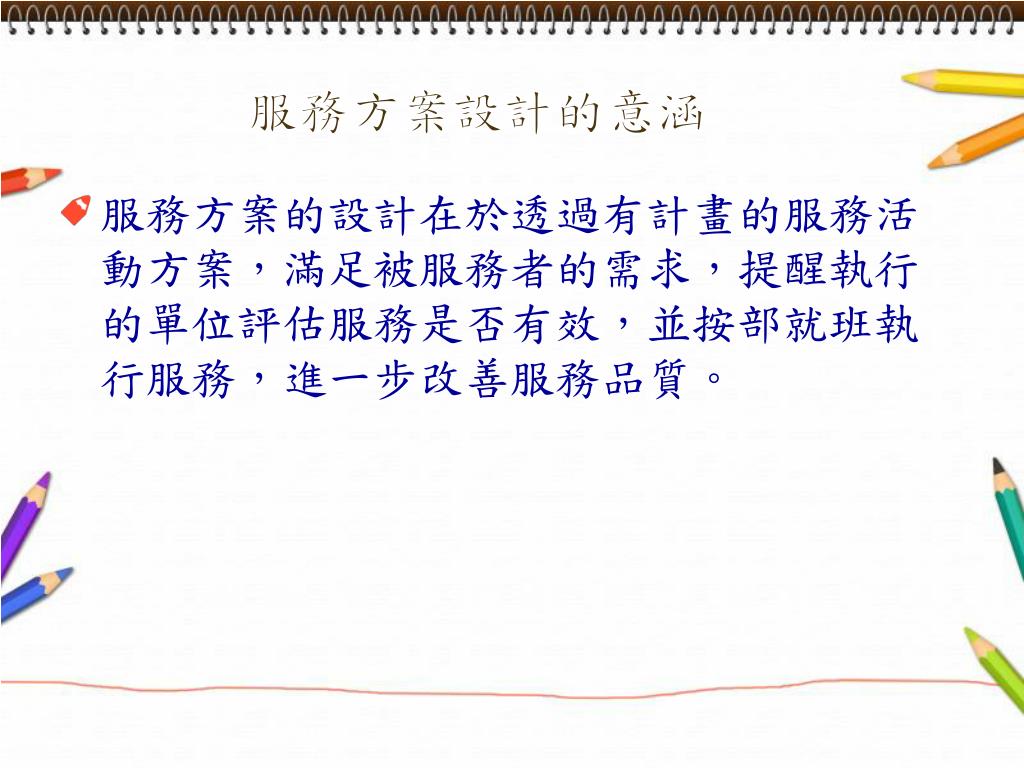 服務方案設計的意涵
服務方案的設計在於透過有計畫的服務活
動方案，滿足被服務者的需求，提醒執行
的單位評估服務是否有效，並按部就班執
行服務，進一步改善服務品質。